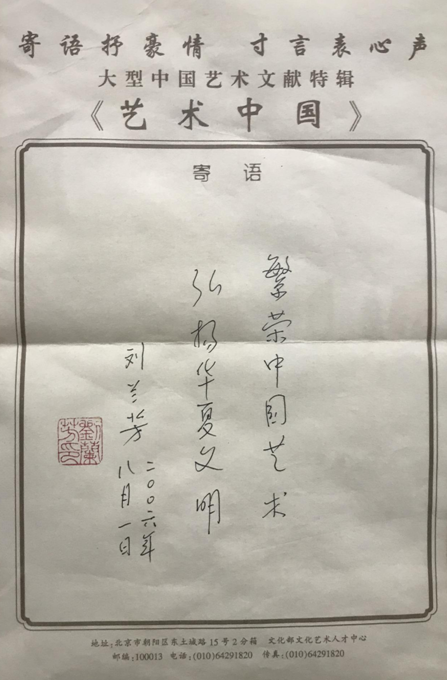 寄语抒豪情 寸言表心声
大型中国艺术文献特辑
《艺术中国》
寄 语
繁荣中国艺术
弘扬华夏文明
刘兰芳
二〇〇六年
八月一日
刘兰芳印
地址:北京市朝阳区东土城路15号2分箱 文化部文化艺术人才中心
邮编:100013 电话:(010)64291820 传真:(010)64291820